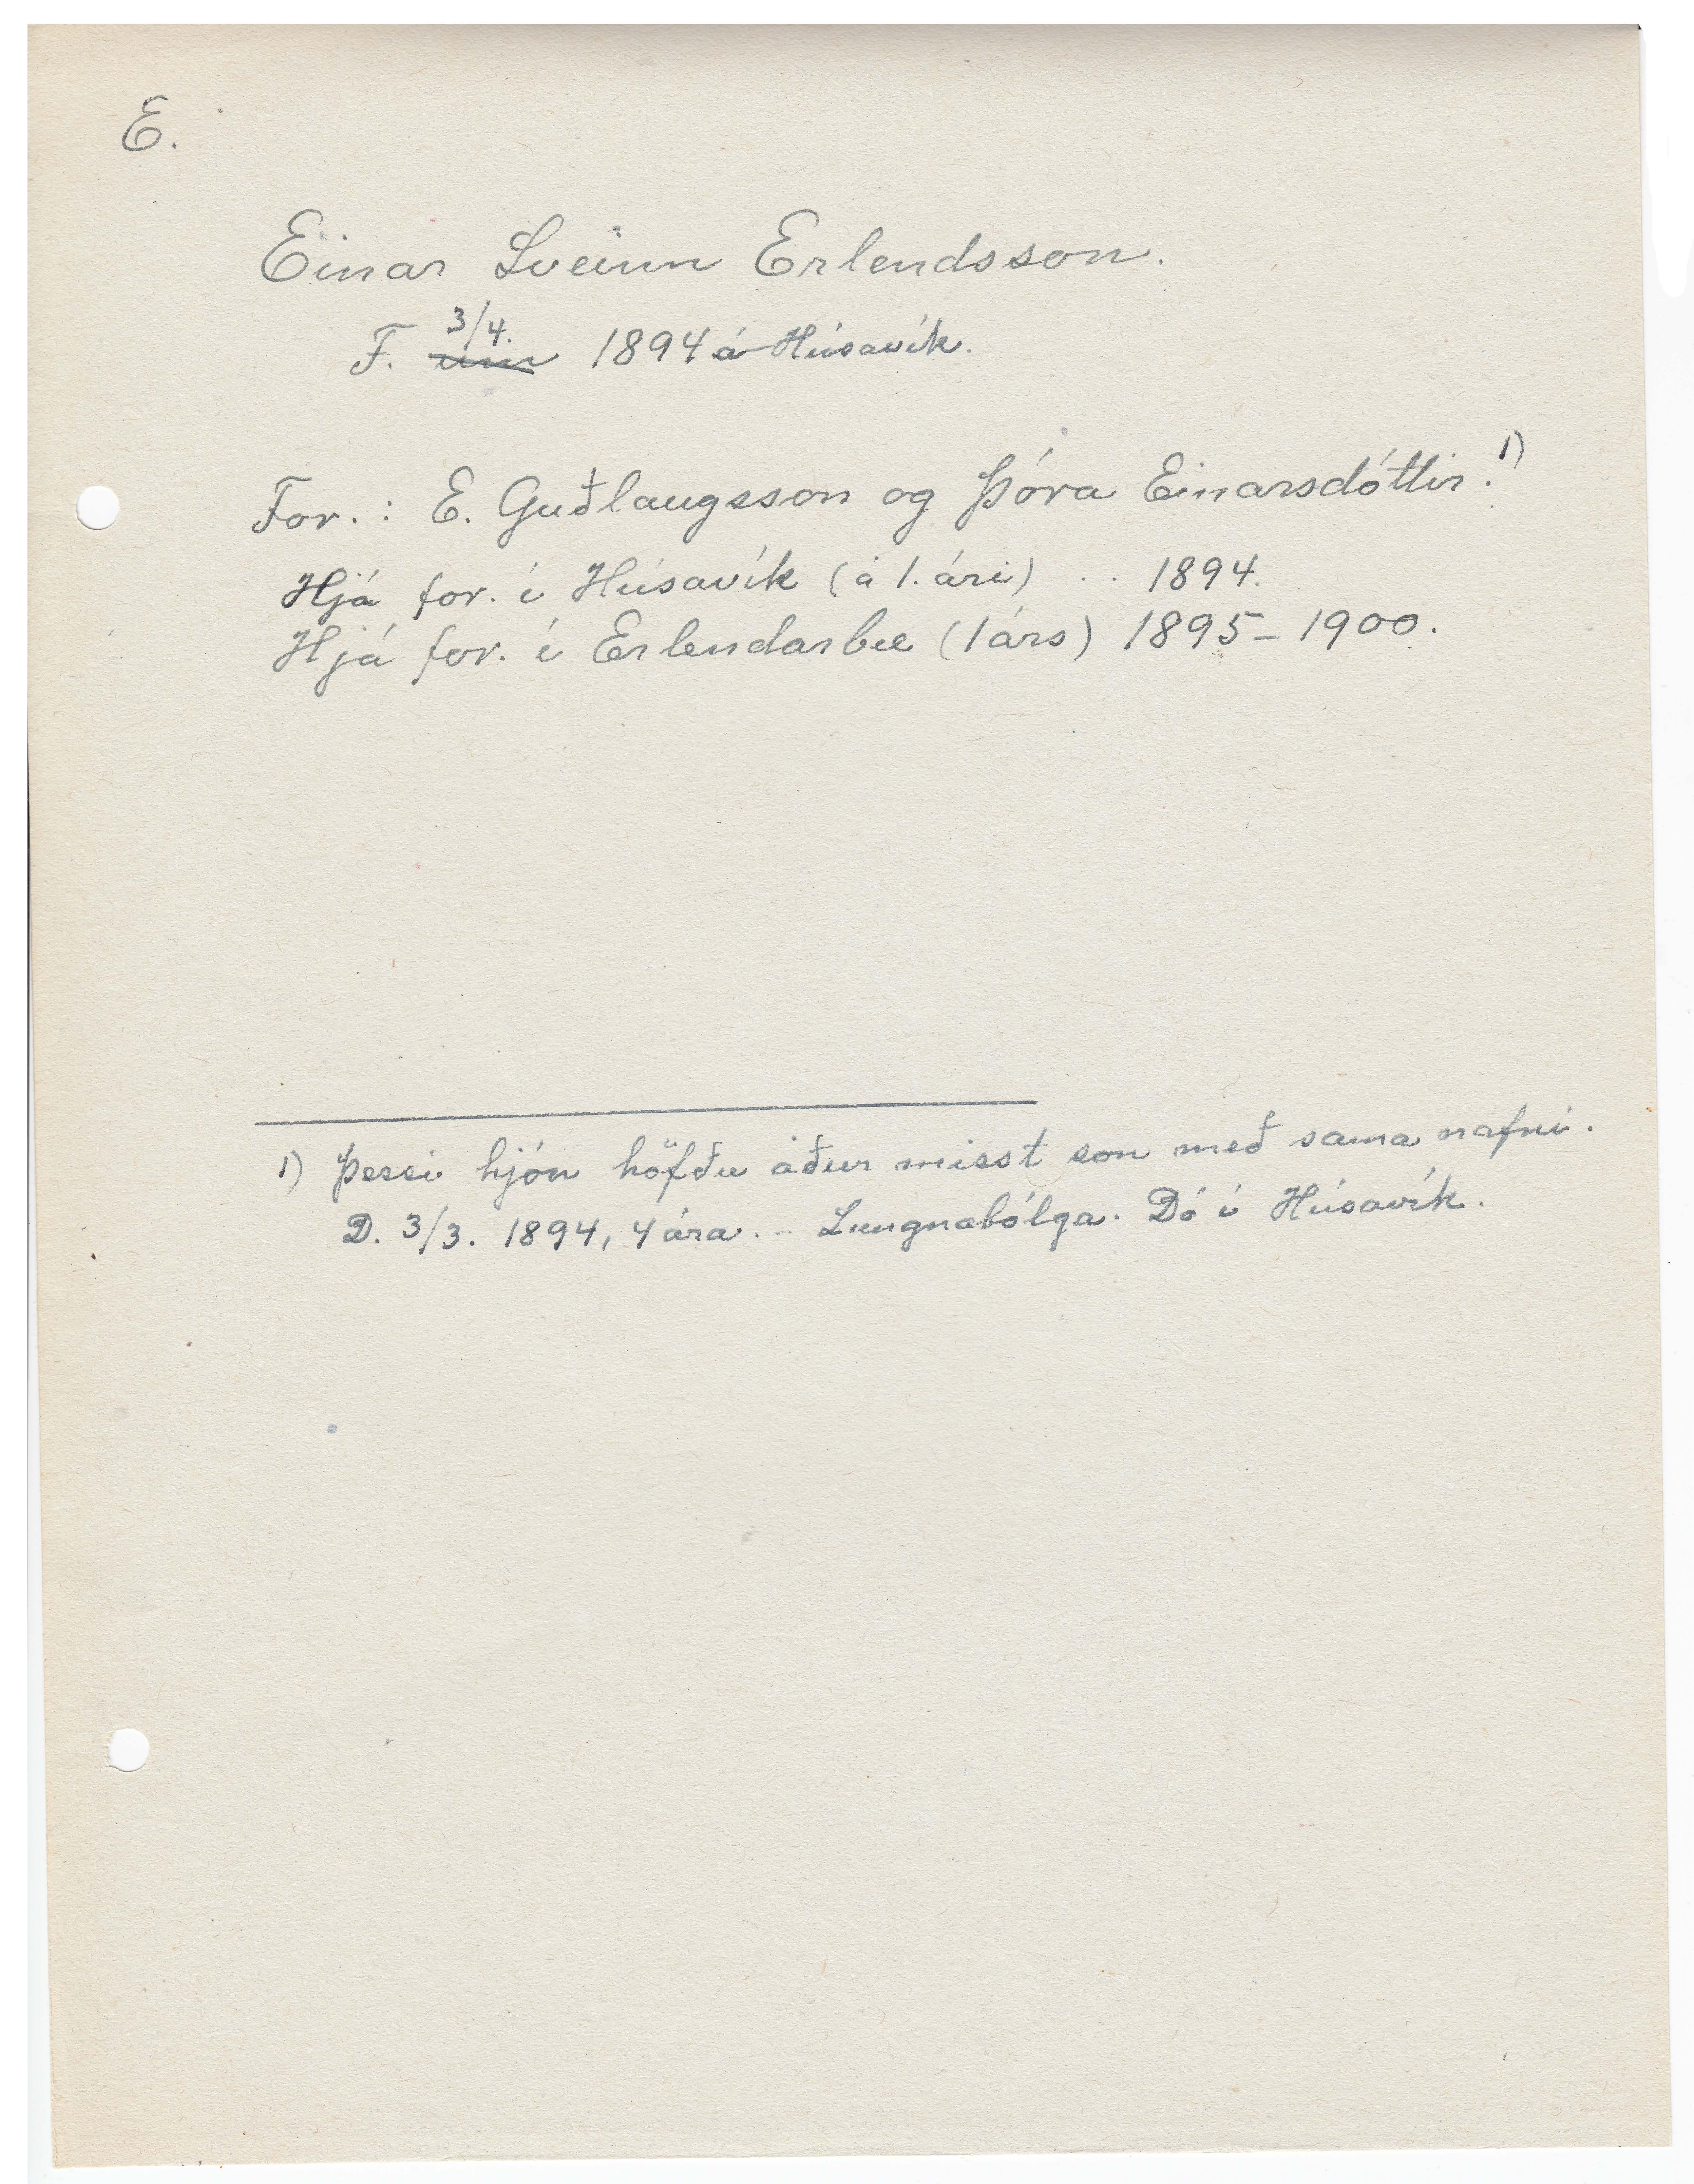 E.
Einar Sveinn Erlendsson.
F. 3/4. 1894 á Húsavík.
For.: E. Guðlaugsson og Þóra Einarsdóttir. 1)
Hjá for. í Húsavík (á 1. ári) . . 1894.
Hjá for. í Erlendarbæ (1 árs) 1895 – 1900.
1) Þessi hjón höfðu áður misst son með sama nafni.
D. 3/3. 1894, 4 ára. – Lungnabólga. Dó í Húsavík.